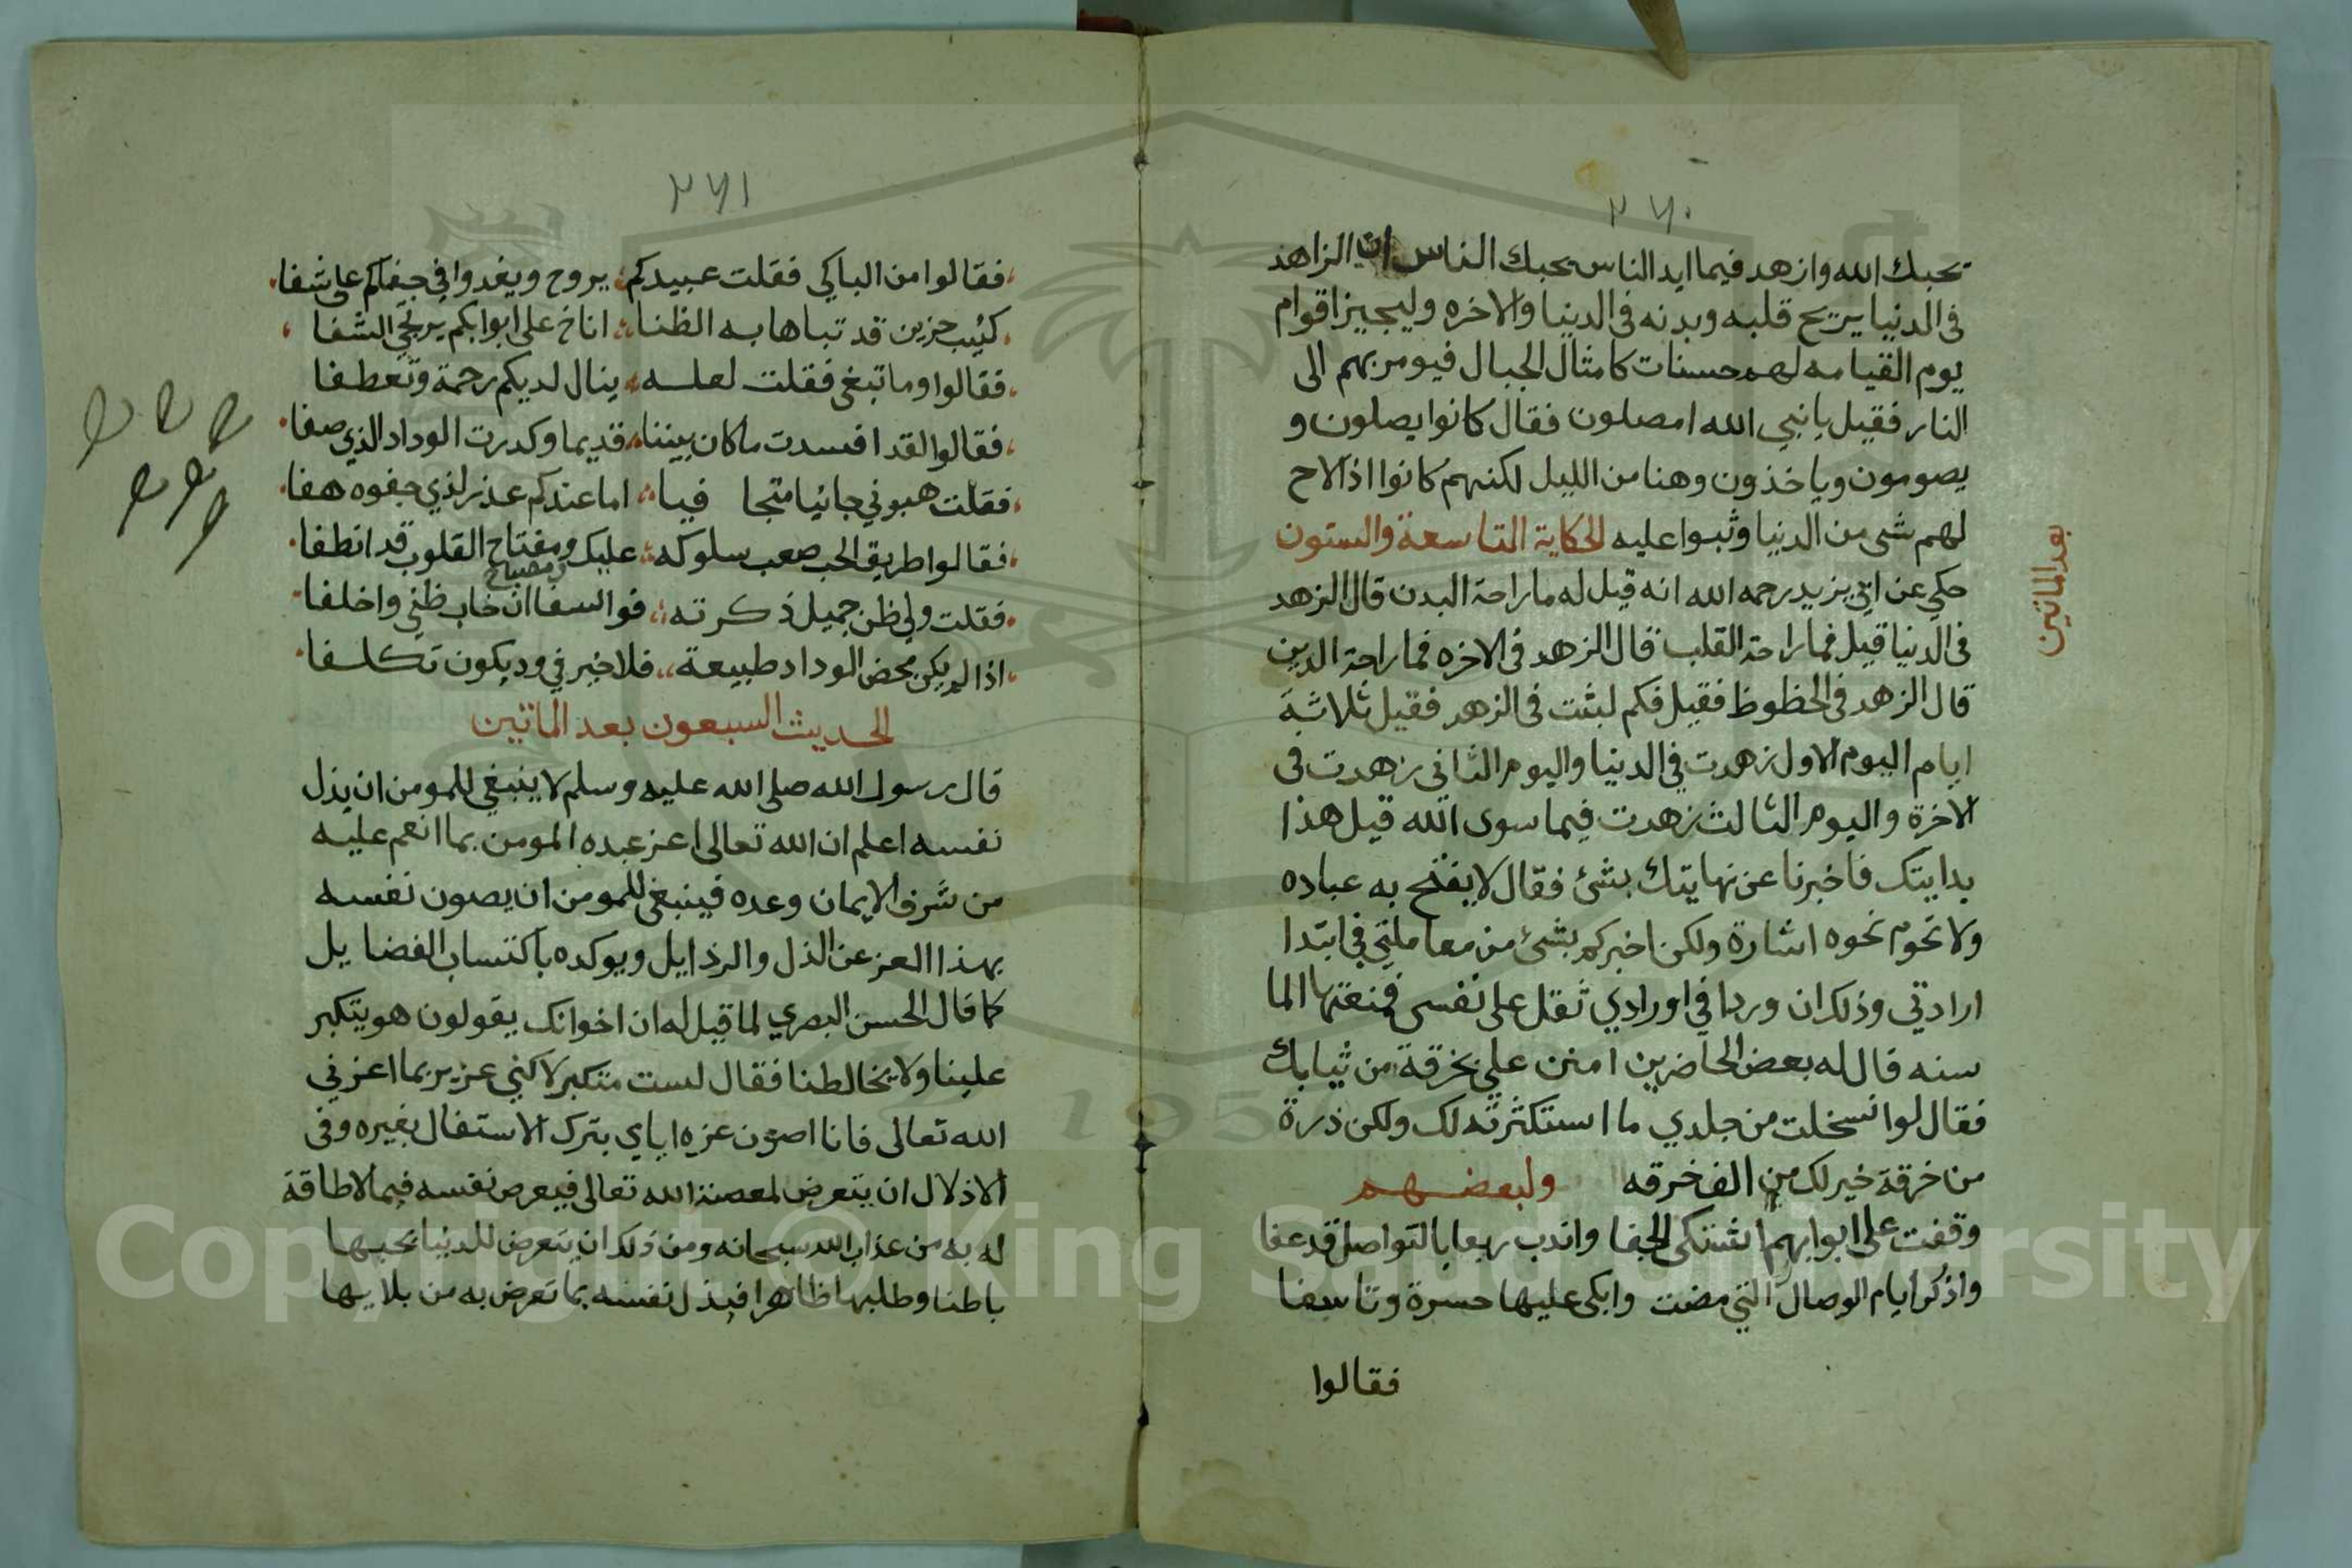 ٢٦٠
يحبك الله وازهد فيما ايد الناس يحبك الناس ان الزاهد
فى الدنيا يريح قلبه وبدنه فى الدنيا والاخره وليجيز اقوام
يوم القيامه لهم حسنات كامثال الجبال فيومر بهم الى
النار فقيل يا نبي الله امصلون فقال كانوا يصلون و
يصومون وياخذون وهنا من الليل لكنهم كانوا اذا لاح
لهم شى من الدنيا وثبوا عليه الحكاية التاسعة والستون
بعد الماتين
حكي عن ابي يزيد رحمه الله انه قيل له ما راحة البدن قال الزهد
فى الدنيا قيل فما راحة القلب قال الزهد فى الاخره فما راحة الدين
قال الزهد فى الحظوظ فقيل فكم لبثت فى الزهد فقيل ثلاثة
ايام اليوم الاول زهدت في الدنيا واليوم الثانى زهدت فى
الاخرة واليوم الثالث زهدت فيما سوى الله قيل هذا
بدايتك فاخبرنا عن نهايتك بشئ فقال لا يفتح به عباده
ولا تحوم نحوه اشارة ولكن اخبركم بشئ من معاملتي في ابتدا
ارادتي وذلك ان وردا في اورادي ثقل على نفسى فمنعتها الما
سنه قال له بعض الحاضرين امنن علي بخرقة من ثيابك
فقال لو انسخلت من جلدي ما استكثرته لك ولكن ذرة
من خرقة خير لك من الف خرقه ولبعضهم
وقفت على ابوابهم اشتكى الجفا واندب ربعا بالتواصل قد عفا
واذكر ايام الوصال التي مضت وابكى عليها حسرة وتاسفا
فقالوا
٢٦١
فقالوا من الباكي فقلت عبيدكم يروح ويغدوا في جفاكم على شفا
كئيب حزين قد تباها به الظنا اناخ على ابوابكم يرتجي الشفا
فقالوا وما تبغى فقلت لعله ينال لديكم رحمة وتعطفا
فقالوا لقد افسدت ما كان بيننا قديما وكدرت الوداد الذي صفا
فقلت هبوني جانيا متجا فيا اما عندكم عذر لذي جفوه هفا
فقالوا طريق الحب صعب سلوكه عليك ومفتاح القلوب قد انطفا
ومصباح
فقلت ولي ظن جميل ذكرته فوا اسفا ان خاب ظني واخلفا
اذا لم يكن محض الوداد طبيعة فلا خير في ود يكون تكلفا
الحديث السبعون بعد الماتين
قال رسول الله صلى الله عليه وسلم لا ينبغي للمومن ان يذل
نفسه اعلم ان الله تعالى اعز عبده المومن بما انعم عليه
من شرف الايمان وعده فينبغى للمومن ان يصون نفسه
بهذا العز عن الذل والرذايل ويوكده باكتساب الفضايل
كما قال الحسن البصري لما قيل له ان اخوانك يقولون هو يتكبر
علينا ولا يخالطنا فقال لست متكبر لاكني عزيز بما اعزني
الله تعالى فانا اصون عزه اياي بترك الاستغال بغيره وفى
الاذلال ان يتعرض لمعصية الله تعالى فيعرض نفسه فيما لا طاقة
له به من عذاب الله سبحانه ومن ذلك ان يتعرض للدنيا بحبها
باطنا وطلبها ظاهرا فيذل نفسه بما تعرض به من بلايها